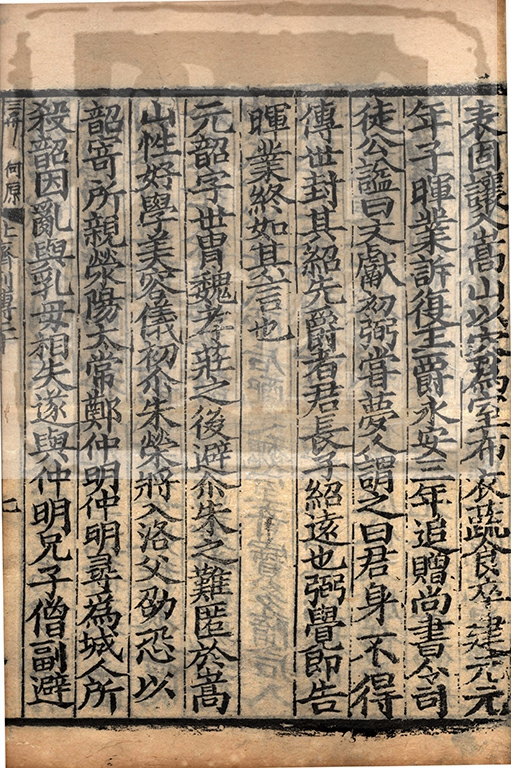 表固讓入嵩山以穴爲室布衣蔬食卒建元元
年子暉業訴復王爵永安三年追贈尚書令司
徒公諡曰文獻初弼嘗夢人謂之曰君身不得
傳世封其紹先爵者君長子紹遠也弼覺即告
暉業終如其言也
元韶字世胄魏孝莊之後避尒朱之難匿於嵩
山性好學美容儀初尒朱榮將入洛父劭恐以
韶寄所親滎陽太常鄭仲明仲明尋爲城人所
殺韶因亂與乳母相失遂與仲明兄子僧副避
何原
七